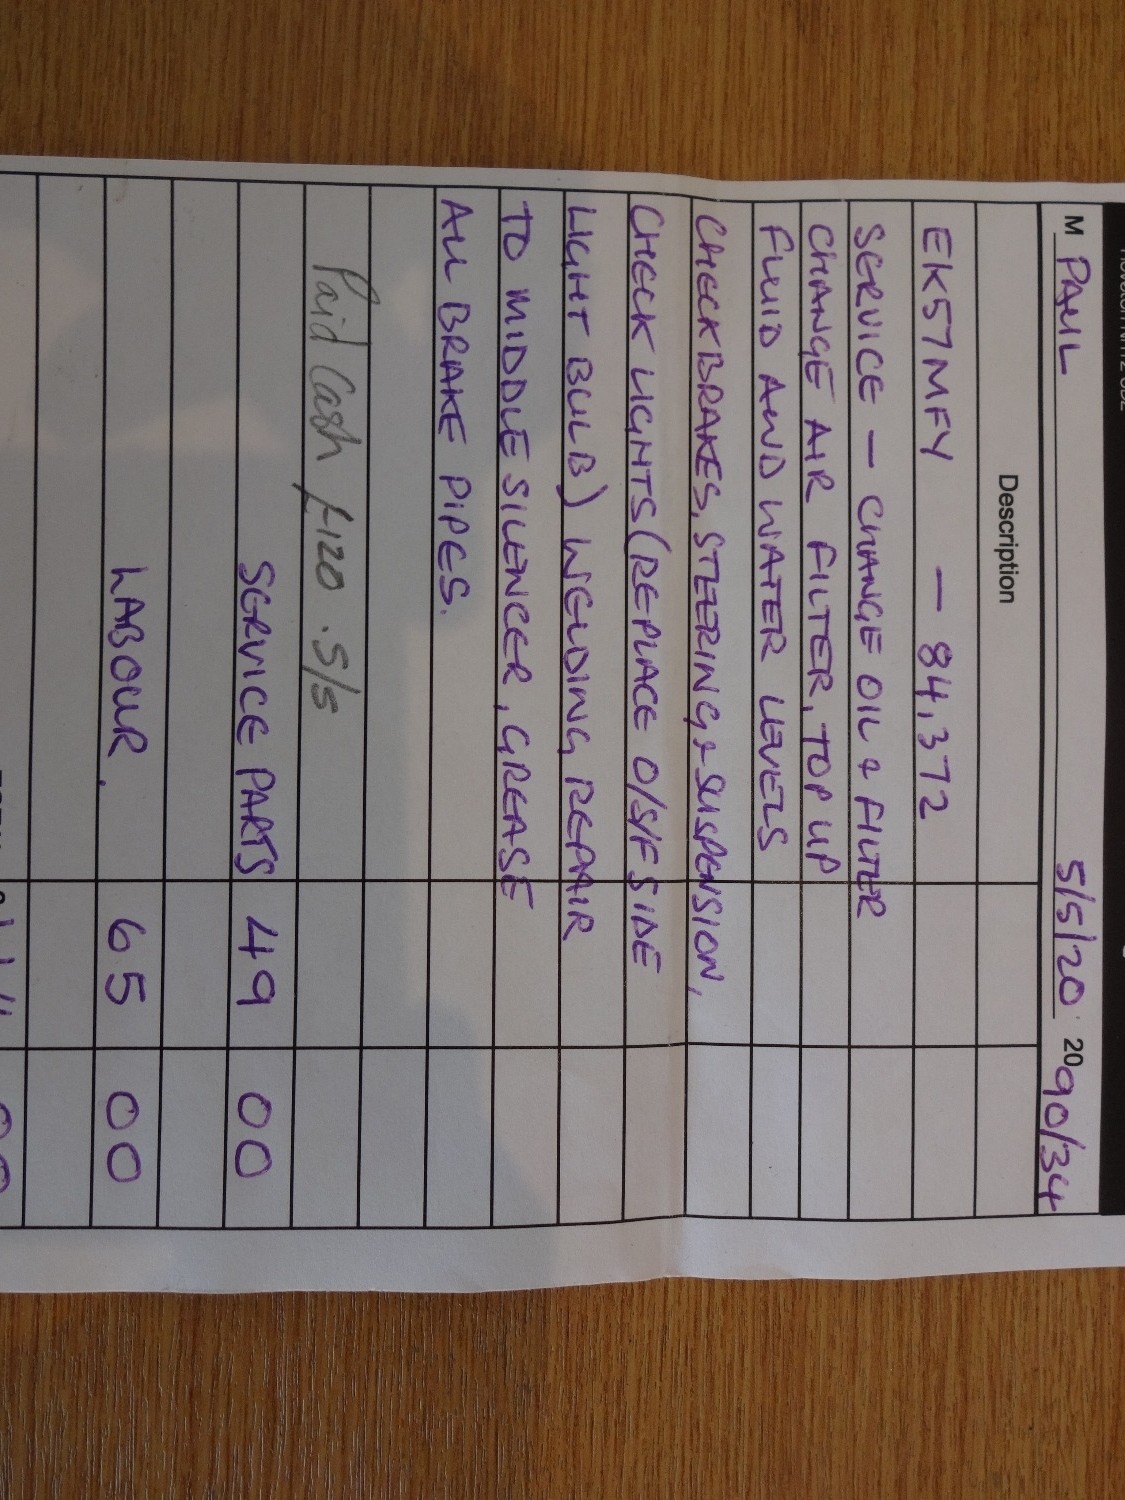 M PAUL 5/5/20 20 90/34
Description
EK57MFY — 84,372
SERVICE — CHANGE OIL & FILTER
CHANGE AIR FILTER, TOP UP
FLUID AND WATER LEVELS
CHECK BRAKES, STEERING, & SUSPENSION,
CHECK LIGHTS (REPLACE O/S/F SIDE
LIGHT BULB) WELDING REPAIR
TO MIDDLE SILENCER, GREASE
ALL BRAKE PIPES.
Paid Cash £120. 5/5
SERVICE PARTS 49 00
LABOUR. 65 00